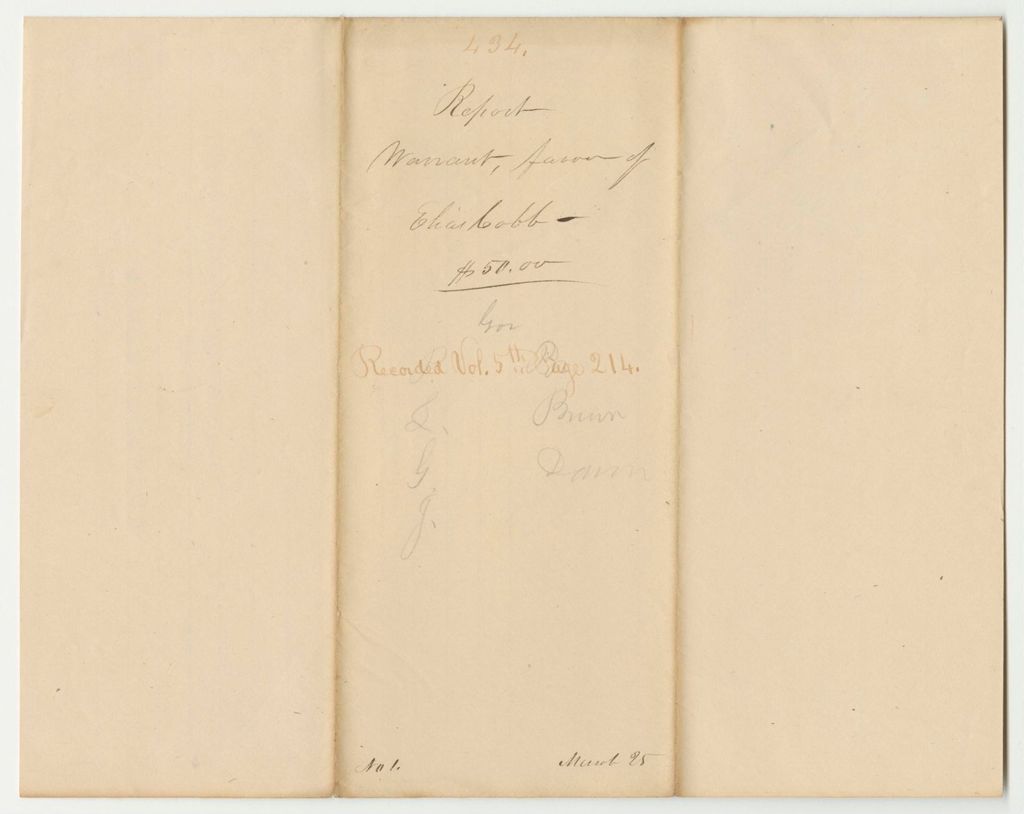 434.
Report
Warrant, favor of
Elias Cobb –
$50.00
Gov
Recorded Vol. 5th. Page 214.
L. Brown
G. Dawn
J.
No 1. March 25